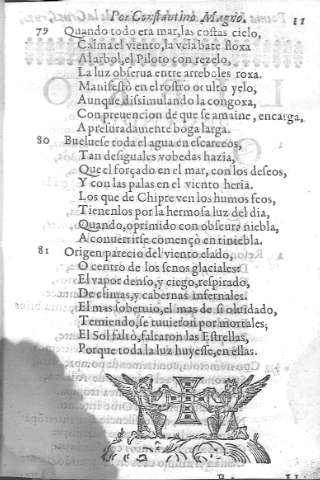 Por Constantino Magno. 11
79 Quando todo era mar, las costas cielo,
Calma el viento, la vela bate floxa
Al arbol, el Piloto con rezelo,
La luz obserua entre arreboles roxa.
Manifestò en el rostro oculto yelo,
Aunque dissimulando la congoxa,
Con preuencion de que se amaine, encarga,
Apresuradamente boga larga.
80 Bueluese toda el agua en escarceos,
Tan desiguales vobedas hazia,
Que el forçado en el mar, con los deseos,
Y con las palas en el viento heria.
Los que de Chipre ven los humos feos,
Tienenlos por la hermosa luz del dia,
Quando, oprimido con obscura niebla,
A conuertirse començò en tiniebla.
81 Origen parecio del viento elado,
O centro de los senos glaciales:
El vapor denso, y ciego, respirado,
De climas, y cabernas infernales.
El mas soberuio, el mas de si oluidado,
Temiendo, se tuuieron por mortales;
El Sol faltò, faltaron las Estrellas,
Porque toda la luz huyesse, en ellas.